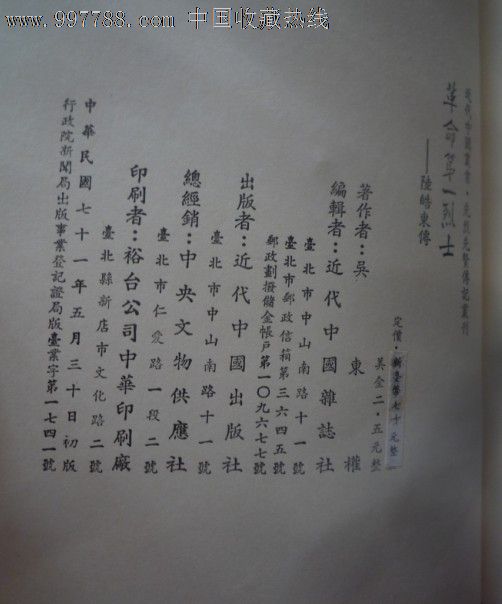 www.997788.com 中国收藏热线
近代中國叢書·先烈先賢傳記叢刊
革命第一烈士
——陸皓東傳
定價·新臺幣七十元整
美金二·五元整
著作者：吳東權
編輯者：近代中國雜誌社
臺北市中山南路十一號
臺北市郵政信箱第三六四五號
郵政劃撥儲金帳戶第一〇九六七七號
出版者：近代中國出版社
臺北市中山南路十一號
總經銷：中央文物供應社
臺北市仁愛路一段二號
印刷者：裕台公司中華印刷廠
臺北縣新店市文化路二號
中華民國七十一年五月三十日初版
行政院新聞局出版事業登記證局版臺業字第一七四一號